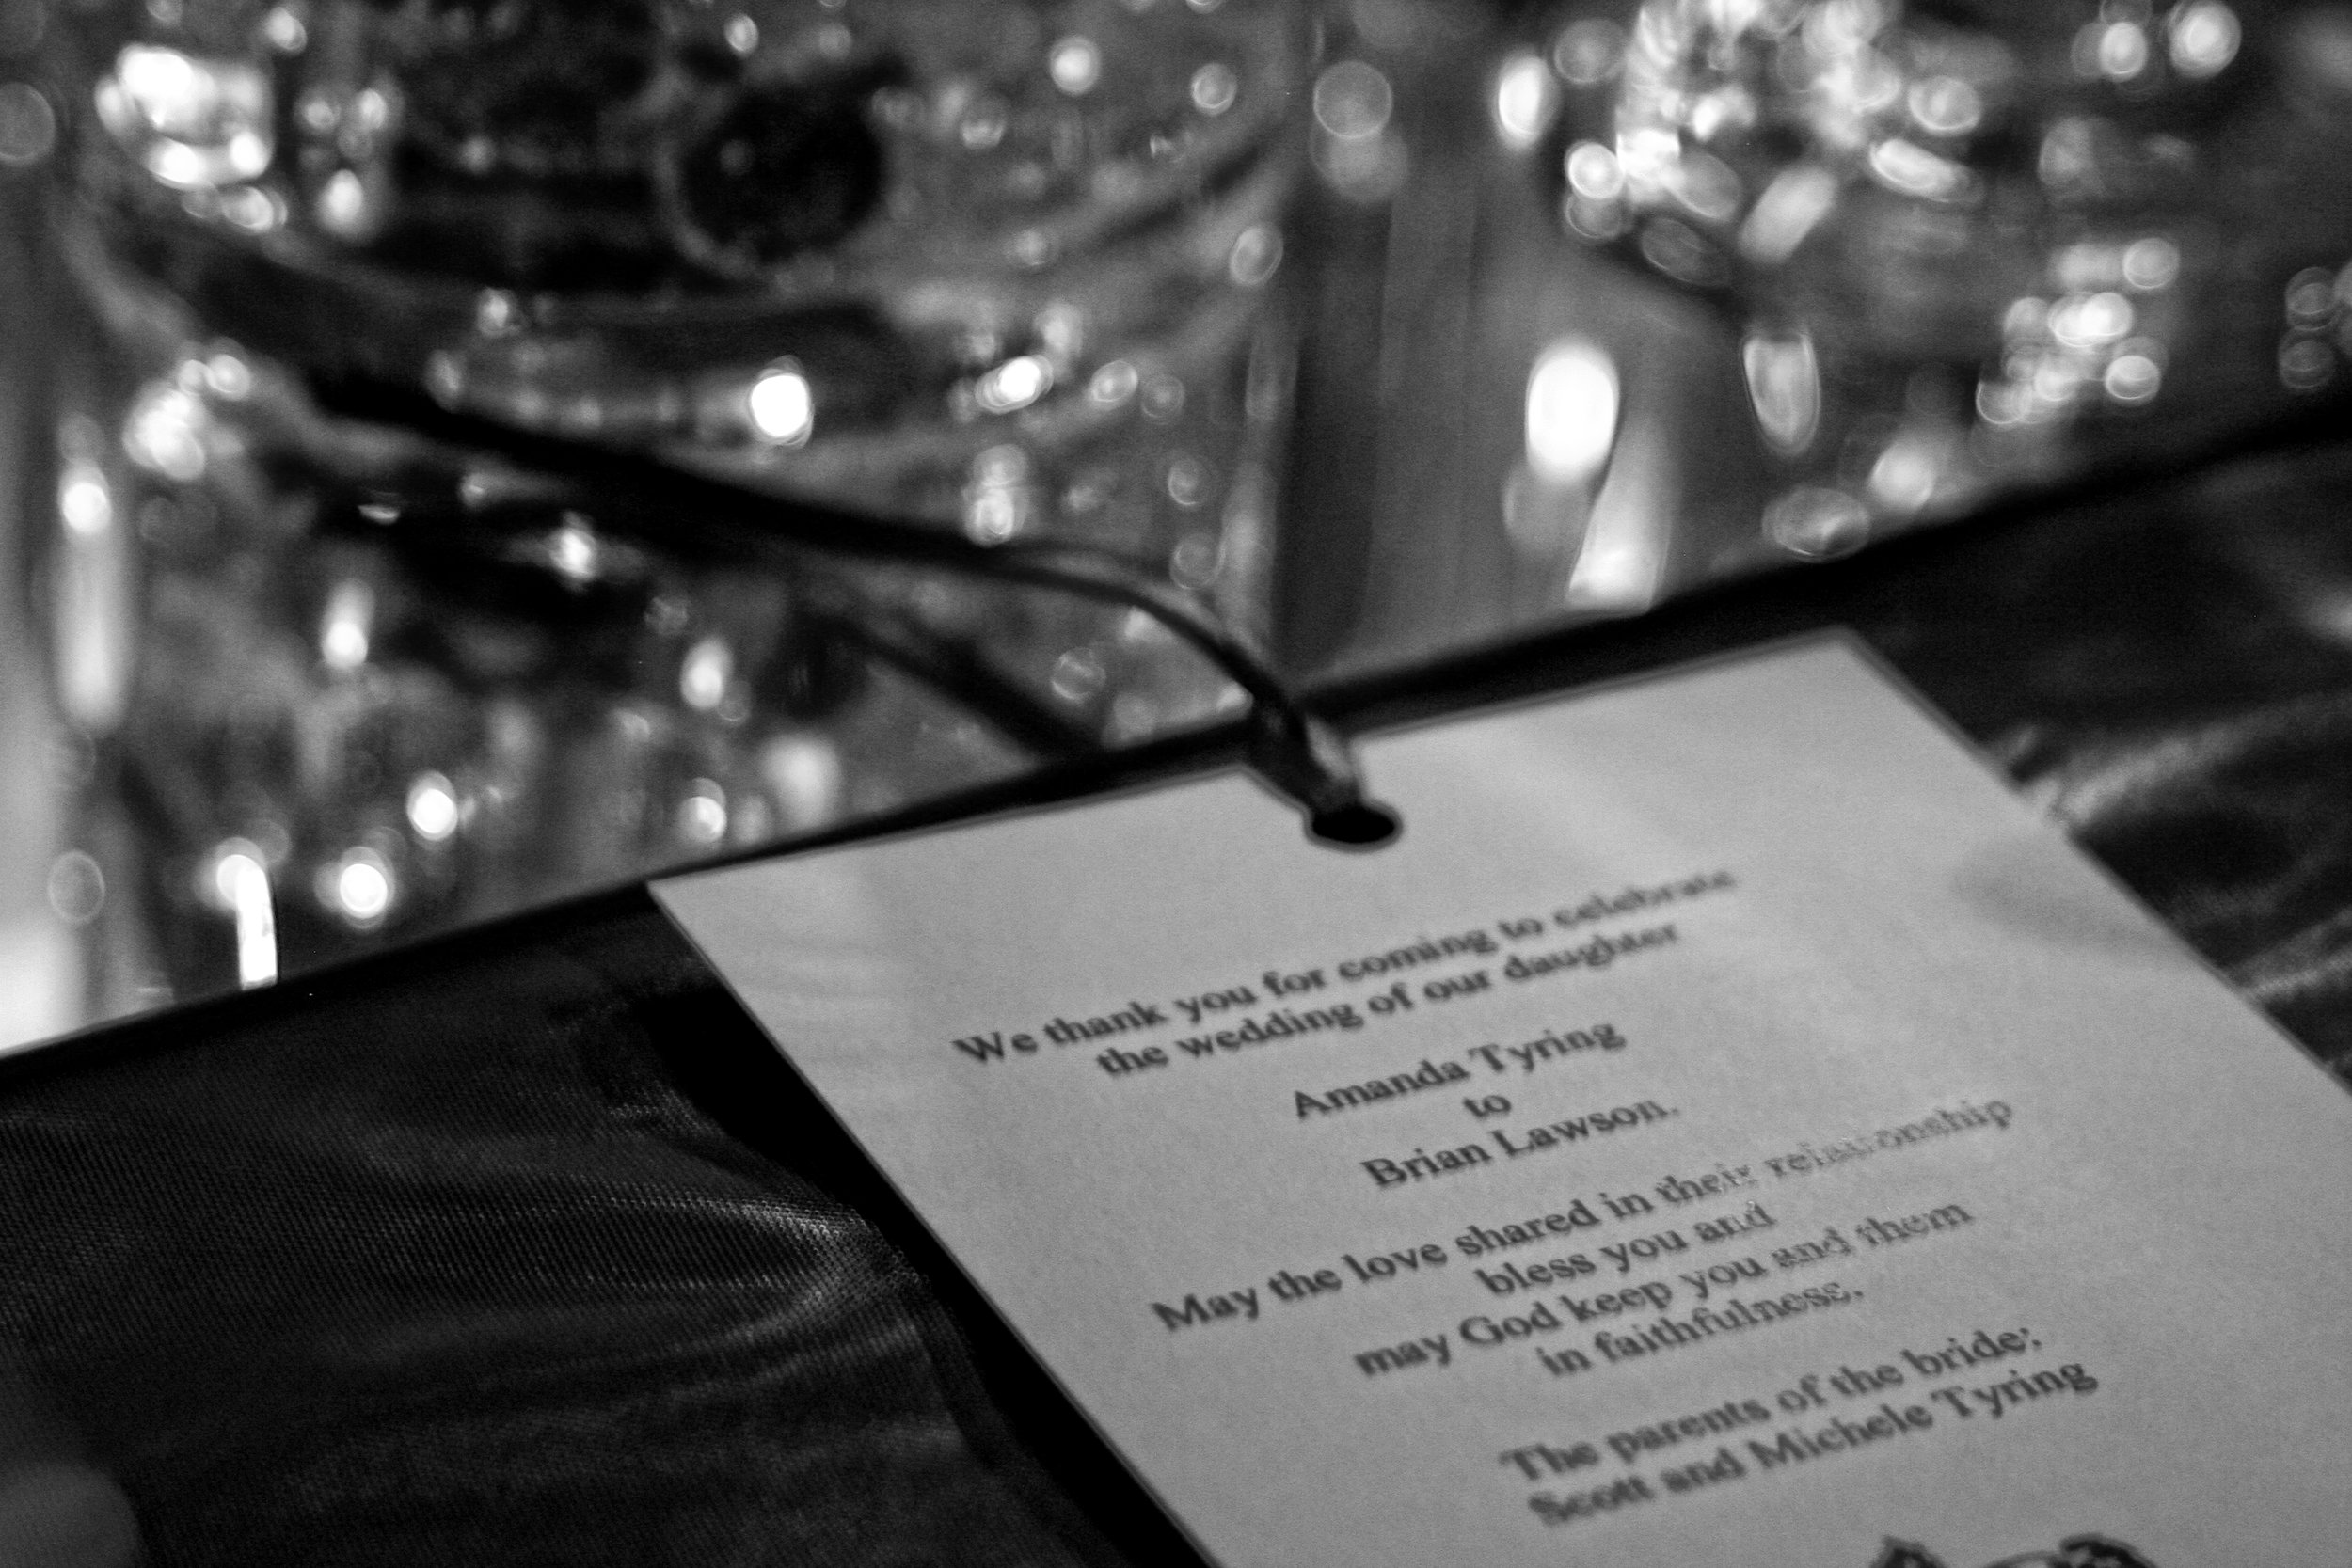 We thank you for coming to celebrate
the wedding of our daughter
Amanda Tyring
to
Brian Lawson.
May the love shared in their relationship
bless you and
may God keep you and them
in faithfulness.
The parents of the bride:
Scott and Michele Tyring